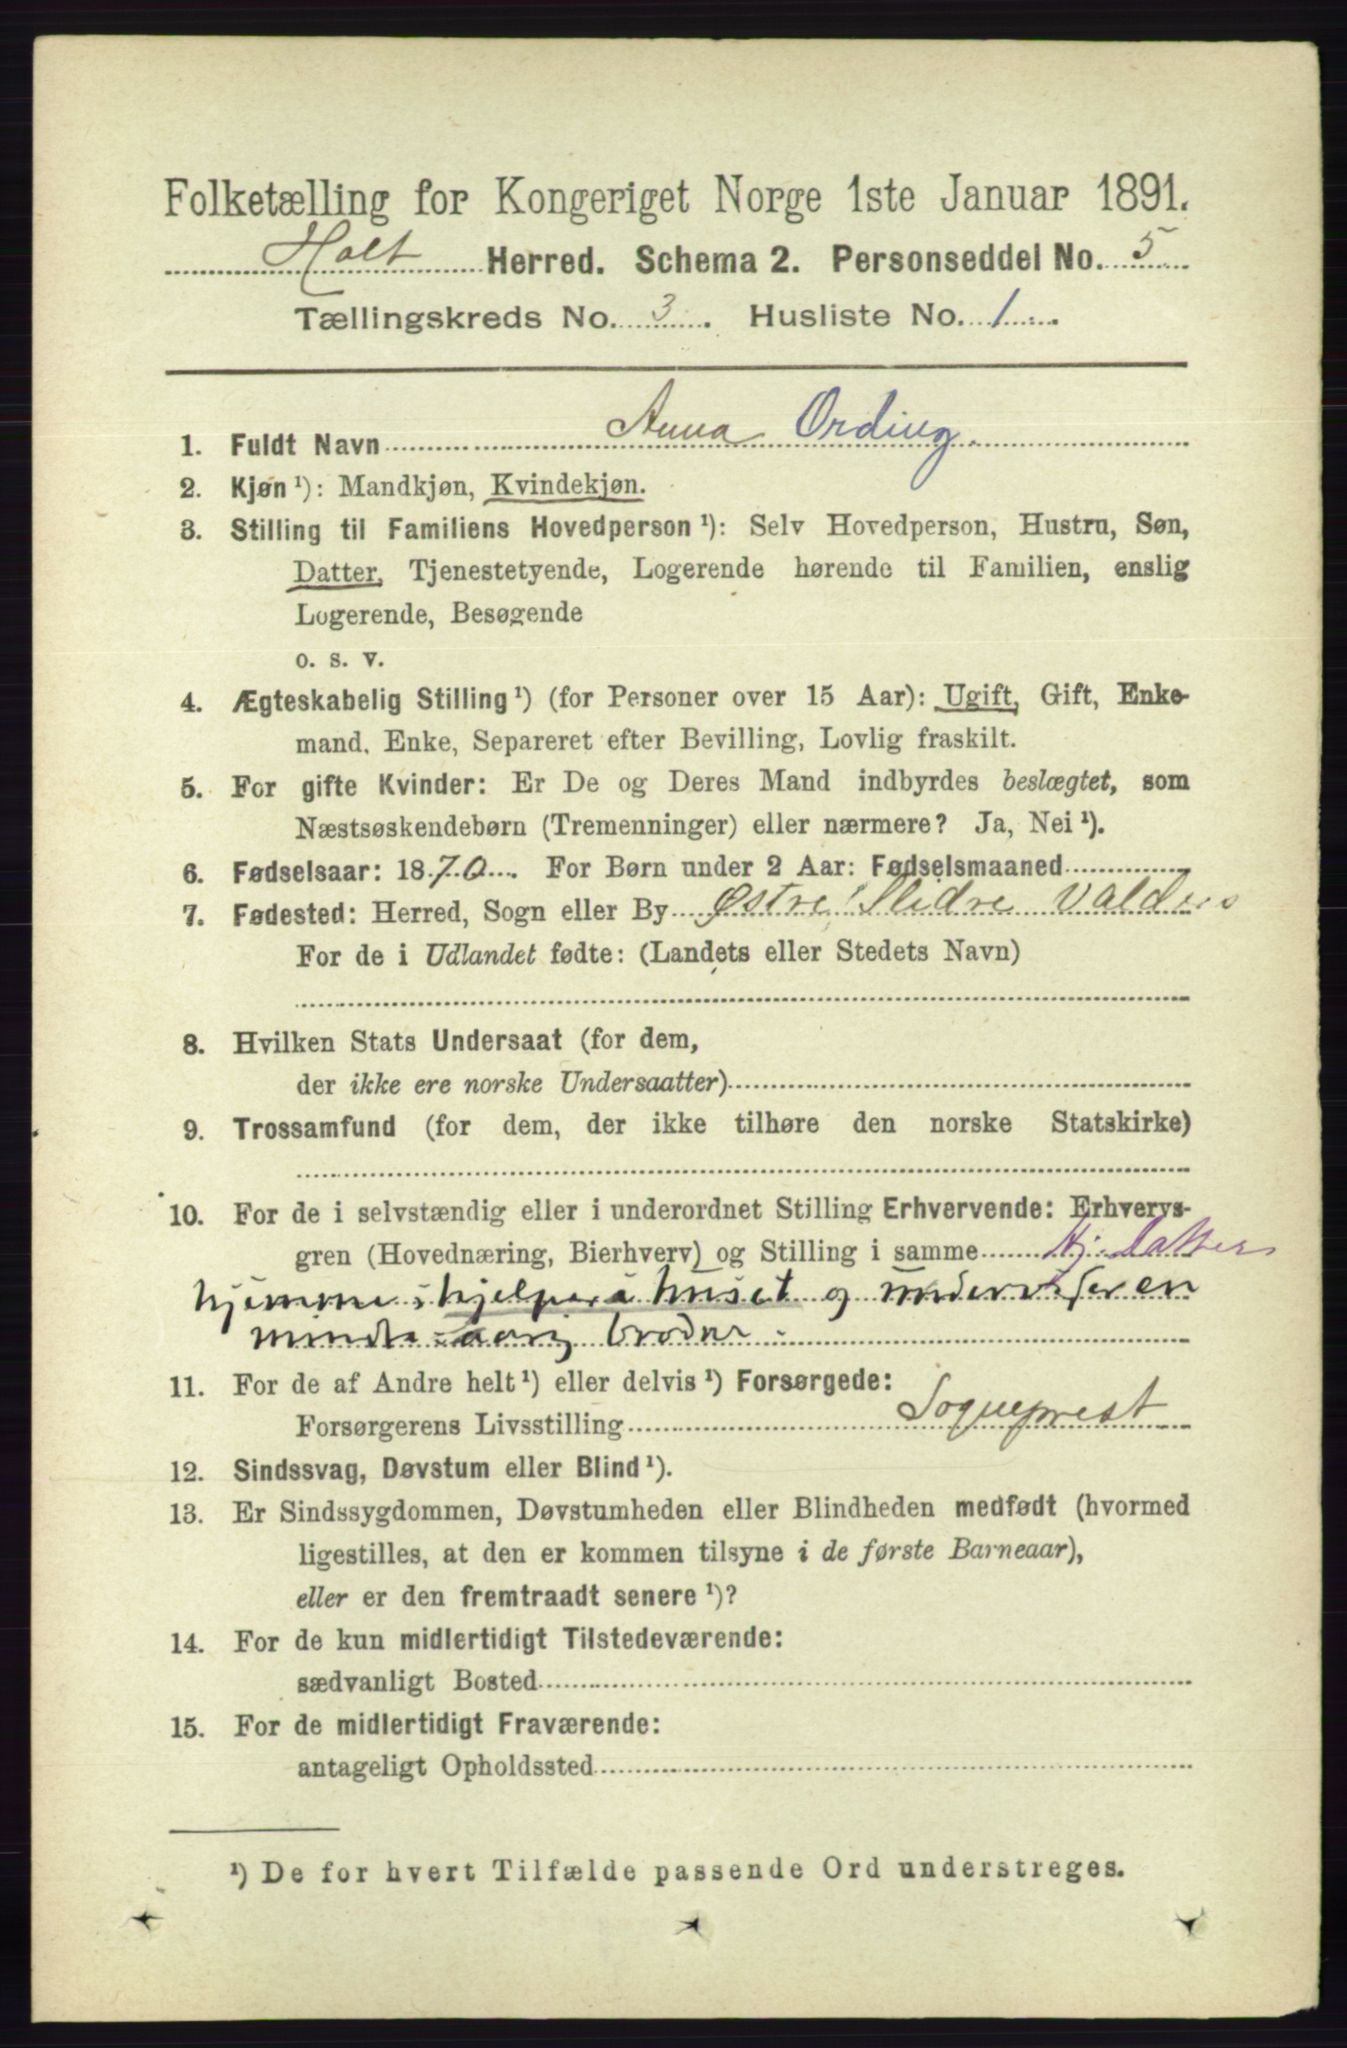 Folketælling for Kongeriget Norge 1ste Januar 1891.
Holt Herred. Schema 2. Personseddel No. 5
Tællingskreds No. 3. Husliste No. 1.
1. Fuldt Navn Anna Ording.
2. Kjøn ¹): Mandkjøn, Kvindekjøn.
3. Stilling til Familiens Hovedperson ¹): Selv Hovedperson, Hustru, Søn,
Datter, Tjenestetyende, Logerende hørende til Familien, enslig
Logerende, Besøgende
o. s. v.
4. Ægteskabelig Stilling ¹) (for Personer over 15 Aar): Ugift, Gift, Enke-
mand, Enke, Separeret efter Bevilling, Lovlig fraskilt.
5. For gifte Kvinder: Er De og Deres Mand indbyrdes beslægtet, som
Næstsøskendebørn (Tremenninger) eller nærmere? Ja, Nei ¹).
6. Fødselsaar: 1870. For Børn under 2 Aar: Fødselsmaaned
7. Fødested: Herred, Sogn eller By Østre Slidre Valders
For de i Udlandet fødte: (Landets eller Stedets Navn)
8. Hvilken Stats Undersaat (for dem,
der ikke ere norske Undersaatter)
9. Trossamfund (for dem, der ikke tilhøre den norske Statskirke)
10. For de i selvstændig eller i underordnet Stilling Erhvervende: Erhvervs-
gren (Hovednæring, Bierhverv) og Stilling i samme Hj. Datter
hjemme, hjelper i huset og underviser en
mindre-aarig broder.
11. For de af Andre helt ¹) eller delvis ¹) Forsørgede:
Forsørgerens Livsstilling Sogneprest
12. Sindssvag, Døvstum eller Blind ¹).
13. Er Sindssygdommen, Døvstumheden eller Blindheden medfødt (hvormed
ligestilles, at den er kommen tilsyne i de første Barneaar),
eller er den fremtraadt senere ¹)?
14. For de kun midlertidigt Tilstedeværende:
sædvanligt Bosted
15. For de midlertidigt Fraværende:
antageligt Opholdssted
¹) De for hvert Tilfælde passende Ord understreges.